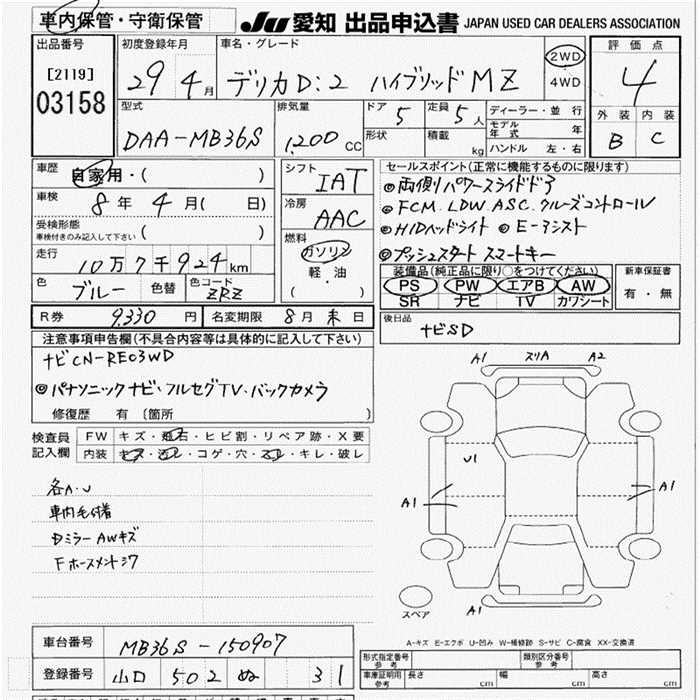 車内保管・守衛保管 JU 愛知 出品申込書 JAPAN USED CAR DEALERS ASSOCIATION
出品番号 初度登録年月 車名・グレード 評価点
[2119] 29 4月 デリカD:2 ハイブリッドMZ 2WD 4
03158 4WD
型式 排気量 ドア 5 定員 5人 ディーラー・並行 外装 内装
DAA-MB36S 1,200 CC 形状 積載 kg モデル年式 年 B C
ハンドル 左・右
車歴 自家用・( )
車検 8年 4月( 日)
受検形態
車検付きのみ記入して下さい ( )
走行 10万7千924km
色 ブルー 色替 色コード ZRZ
シフト IAT
冷房 AAC
燃料 ガソリン
軽・油
( ・ )
セールスポイント(正常に機能するものに限ります)
◎両側パワースライドドア
◎FCM.LDW.ASC.クルーズコントロール
◎HIDヘッドライト ◎E-アシスト
◎プッシュスタート スマートキー
装備品(純正品に限り○をつけてください) 新車保証書
PS PW エアB AW 有・無
SR ナビ TV カワシート
R券 9,330円 名変期限 8月末日
後日品 ナビSD
注意事項申告欄(不具合内容等は具体的に記入して下さい)
ナビCN-RE03WD
◎パナソニックナビ・フルセグTV・バックカメラ
修復歴 有 〔箇所 〕
検査員記入欄 FW キズ・飛石・ヒビ割・リペア跡・X要
内装 キズ・汚レ・コゲ・穴・スレ・キレ・破レ
各A・U
車内毛付着
Dミラー AWキズ
A1 スリA A2
U1
A1 A1
スペア A1
A-キズ E-エクボ U-凹み W-補修跡 S-サビ C-腐食 XX-交換済
車台番号 MB36S-150907
登録番号 山口 502 ぬ 31
形式指定番号 参考 類別区分番号 参考
車庫証明用 参考 長さ cm 幅 cm 高さ cm